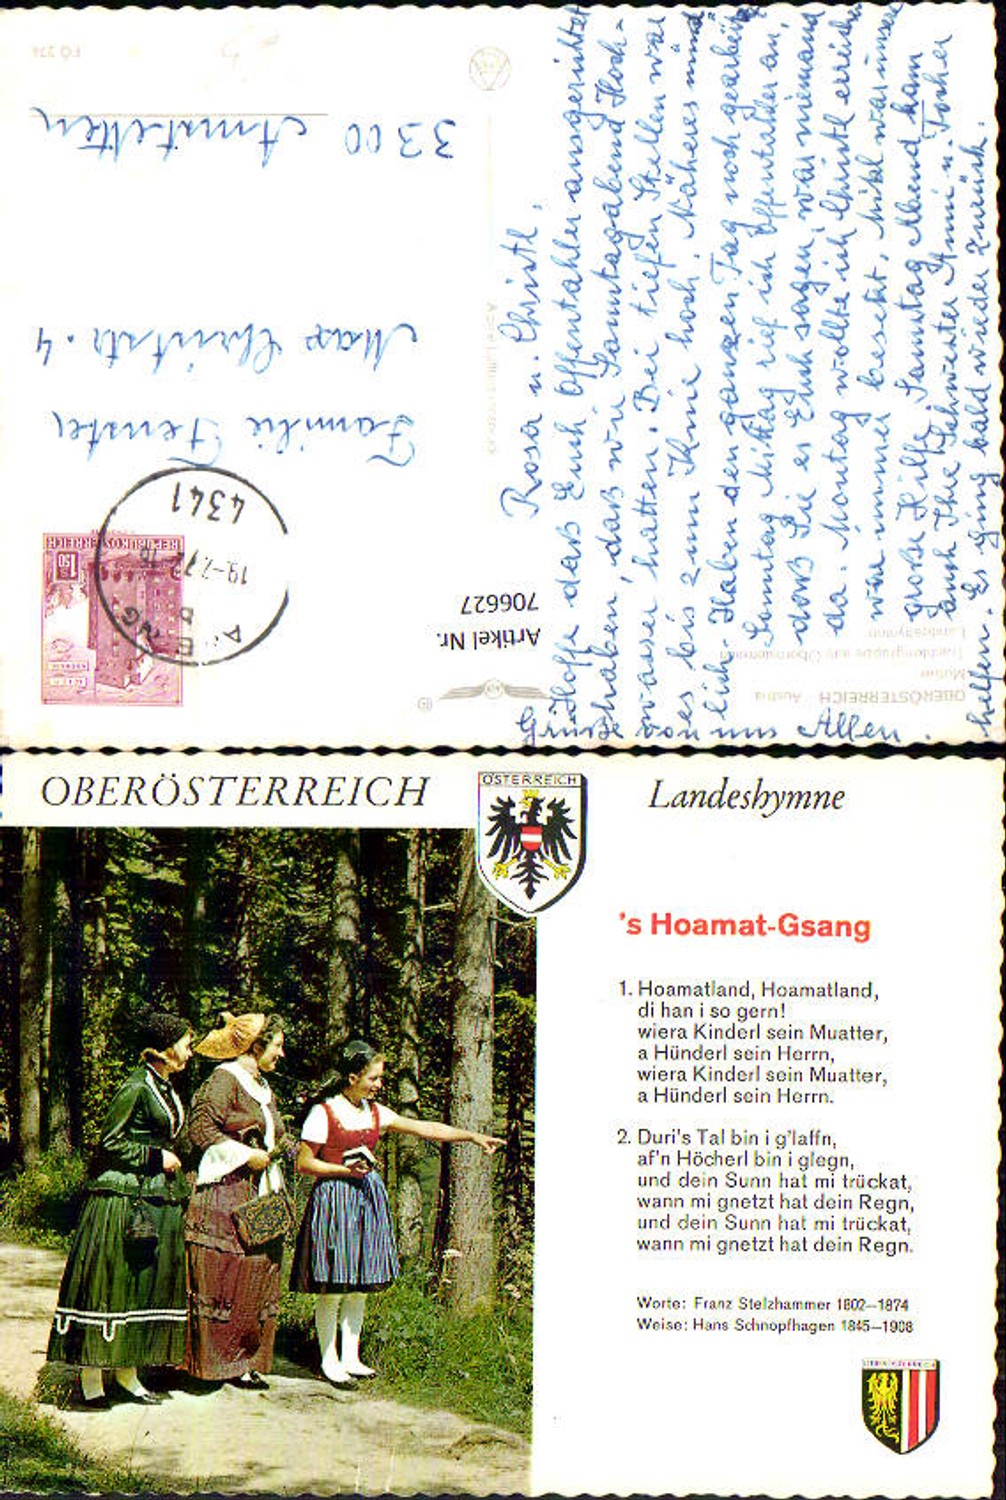 3300 Amstetten
Max Christstr. 4
Familie Fenster
4341
19.-7.72
REPUBLIK ÖSTERREICH
1.50
Artikel Nr.
706627
OBERÖSTERREICH - Austria
Landeshymne
Rosa u. Christl,
Hoffe daß Euch Offentahler ausgerichtet
haben, daß wir Samstagabend Hoch-
wasser hatten. Bei tiefen Stellen war
es bis zum Knie hoch. Näheres münd
lich. Haben den ganzen Tag noch gearbeitet
Sonntag Mittag rief ich Offentahler an,
daß Sie es Euch sagen, war niemand
da. Montag wollte ich Christl erreichen
war immer besetzt. war unsere
große Hilfe, Samstag Abend kam
auch Ihre Schwester Anni u. Tochter
helfen. Es ging bald wieder zurück.
Grüße von uns Allen.
OBERÖSTERREICH
ÖSTERREICH
Landeshymne
's Hoamat-Gsang
1. Hoamatland, Hoamatland,
di han i so gern!
wiera Kinderl sein Muatter,
a Hünderl sein Herrn,
wiera Kinderl sein Muatter,
a Hünderl sein Herrn.
2. Duri's Tal bin i g'laffn,
af'n Höcherl bin i glegn,
und dein Sunn hat mi trückat,
wann mi gnetzt hat dein Regn,
und dein Sunn hat mi trückat,
wann mi gnetzt hat dein Regn.
Worte: Franz Stelzhammer 1802–1874
Weise: Hans Schnopfhagen 1845–1908